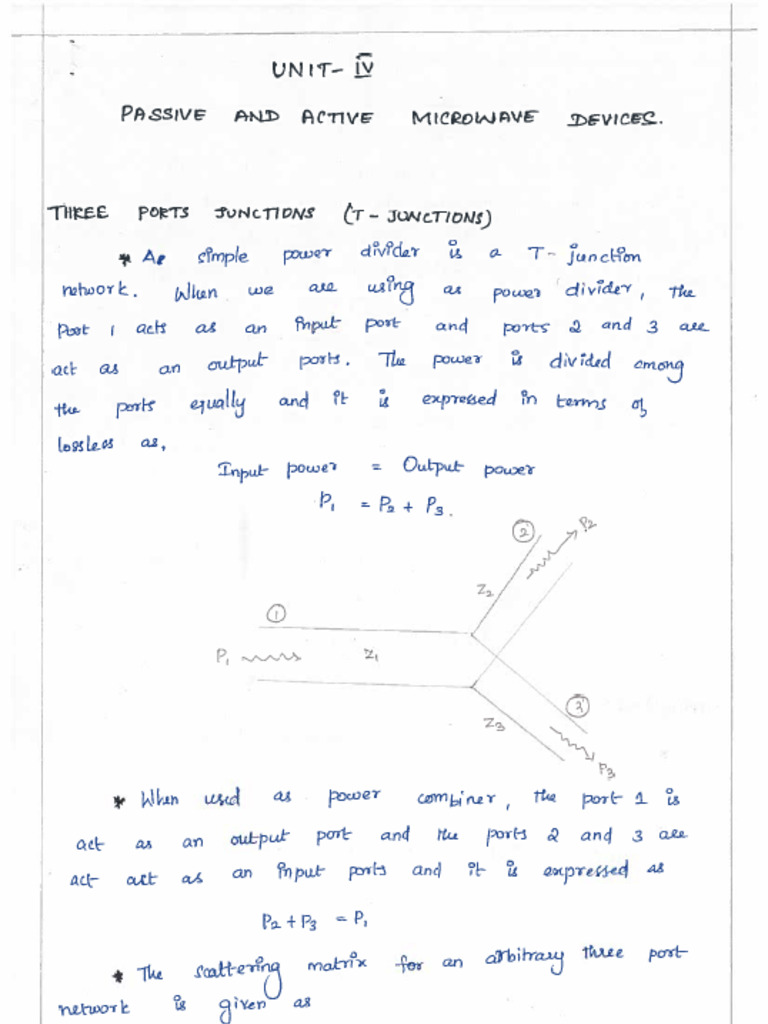 UNIT- IV
PASSIVE AND ACTIVE MICROWAVE DEVICES.
THREE PORTS JUNCTIONS (T - JUNCTIONS)
* A simple power divider is a T - junction
network. When we are using as power divider, the
Port 1 acts as an input port and ports 2 and 3 are
act as an output ports. The power is divided among
the ports equally and it is expressed in terms of
lossless as,
Input power = Output power
P1 = P2 + P3.
2
P2
Z2
1
P1
Z1
3
Z3
P3
* When used as power combiner, the port 1 is
act as an output port and the ports 2 and 3 are
act act as an input ports and it is expressed as
P2 + P3 = P1
* The scattering matrix for an arbitrary three port
network is given as